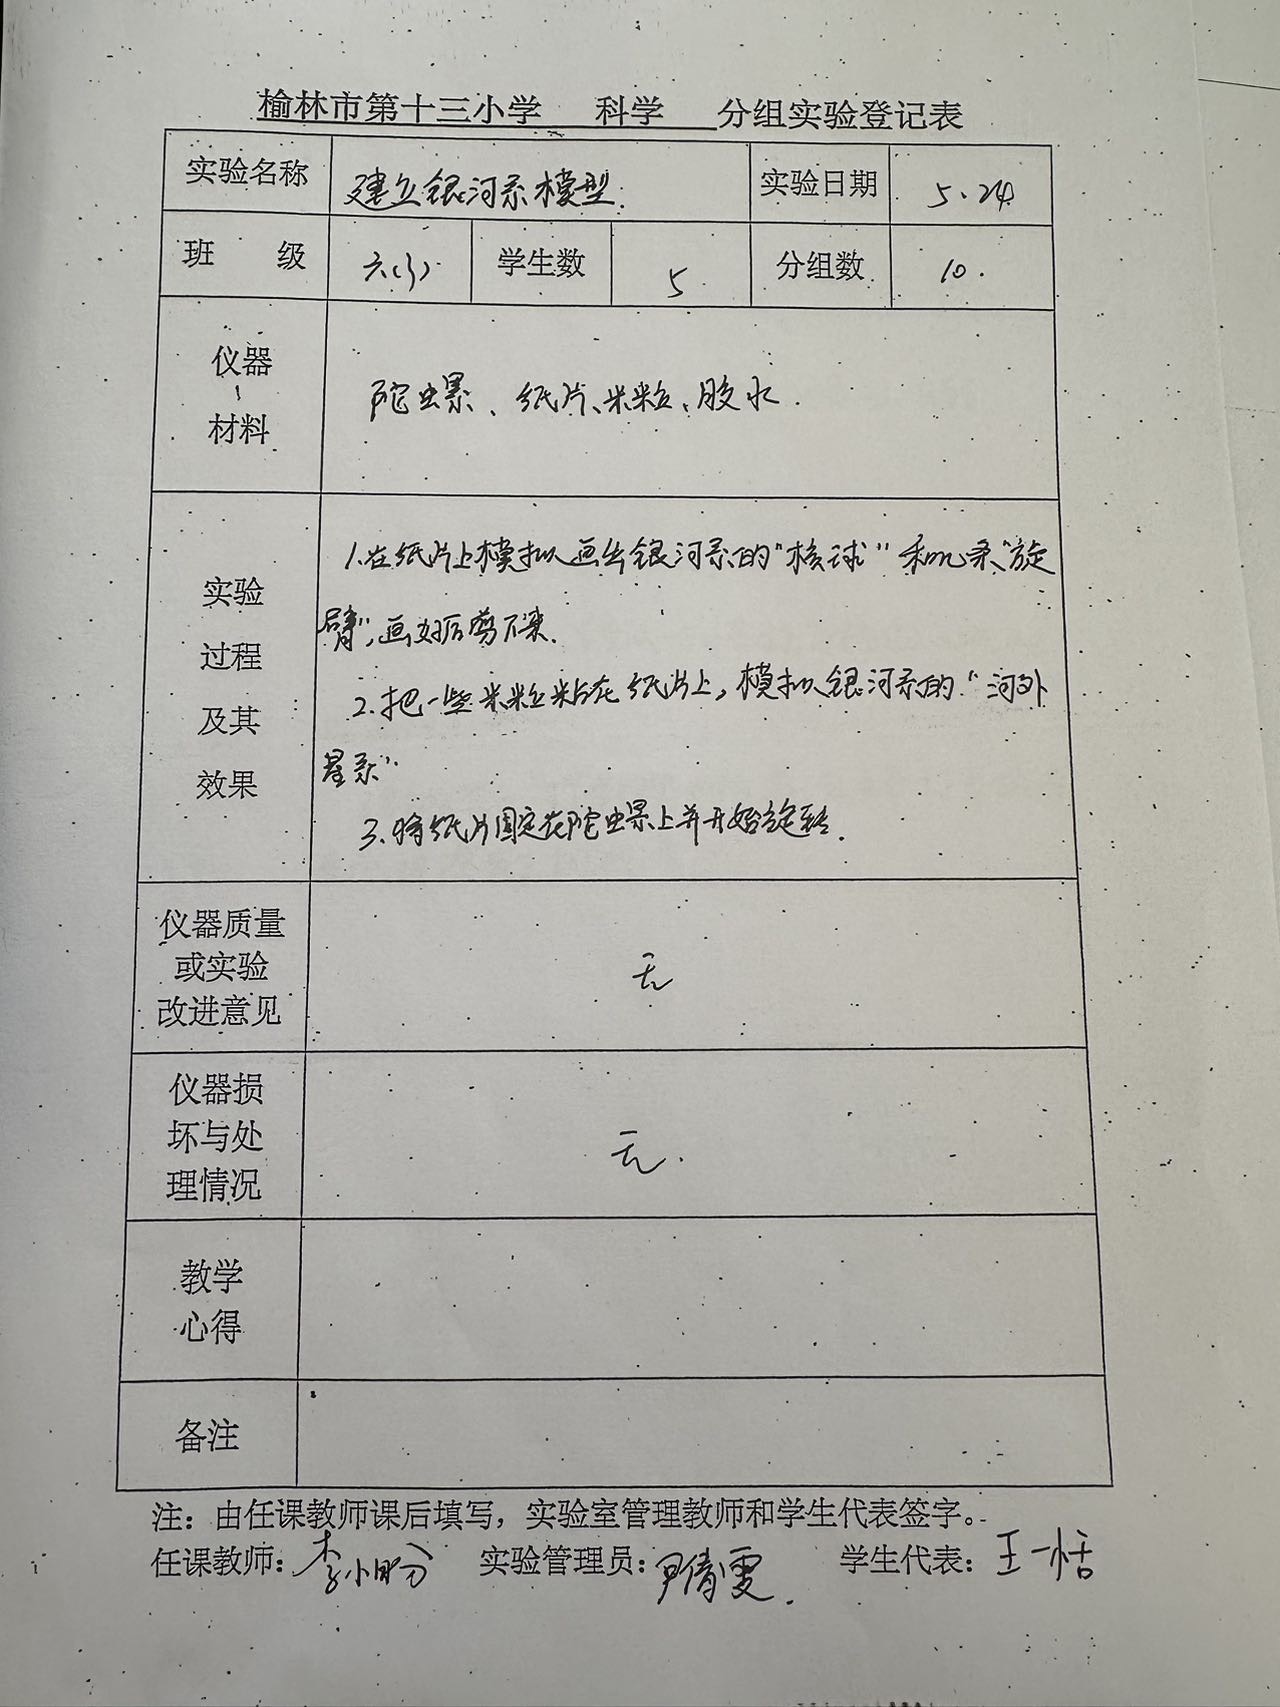 榆林市第十三小学 科学 分组实验登记表
实验名称 建立银河系模型. 实验日期 5.24
班 级 六( ) 学生数 5 分组数 10.
仪器
材料
陀螺、纸片、米粒、胶水.
实验
过程
及其
效果
1.在纸片上模拟画出银河系的"核球"和几条"旋
臂",画好后剪下来.
2.把一些米粒粘在纸片上,模拟银河系的"河外
星系"
3.将纸片固定在陀螺上并开始旋转.
仪器质量
或实验
改进意见
无
仪器损
坏与处
理情况
无.
教学
心得
备注
注：由任课教师课后填写，实验室管理教师和学生代表签字。
任课教师: 李小盼 实验管理员: 尹倩雯. 学生代表: 王一恬